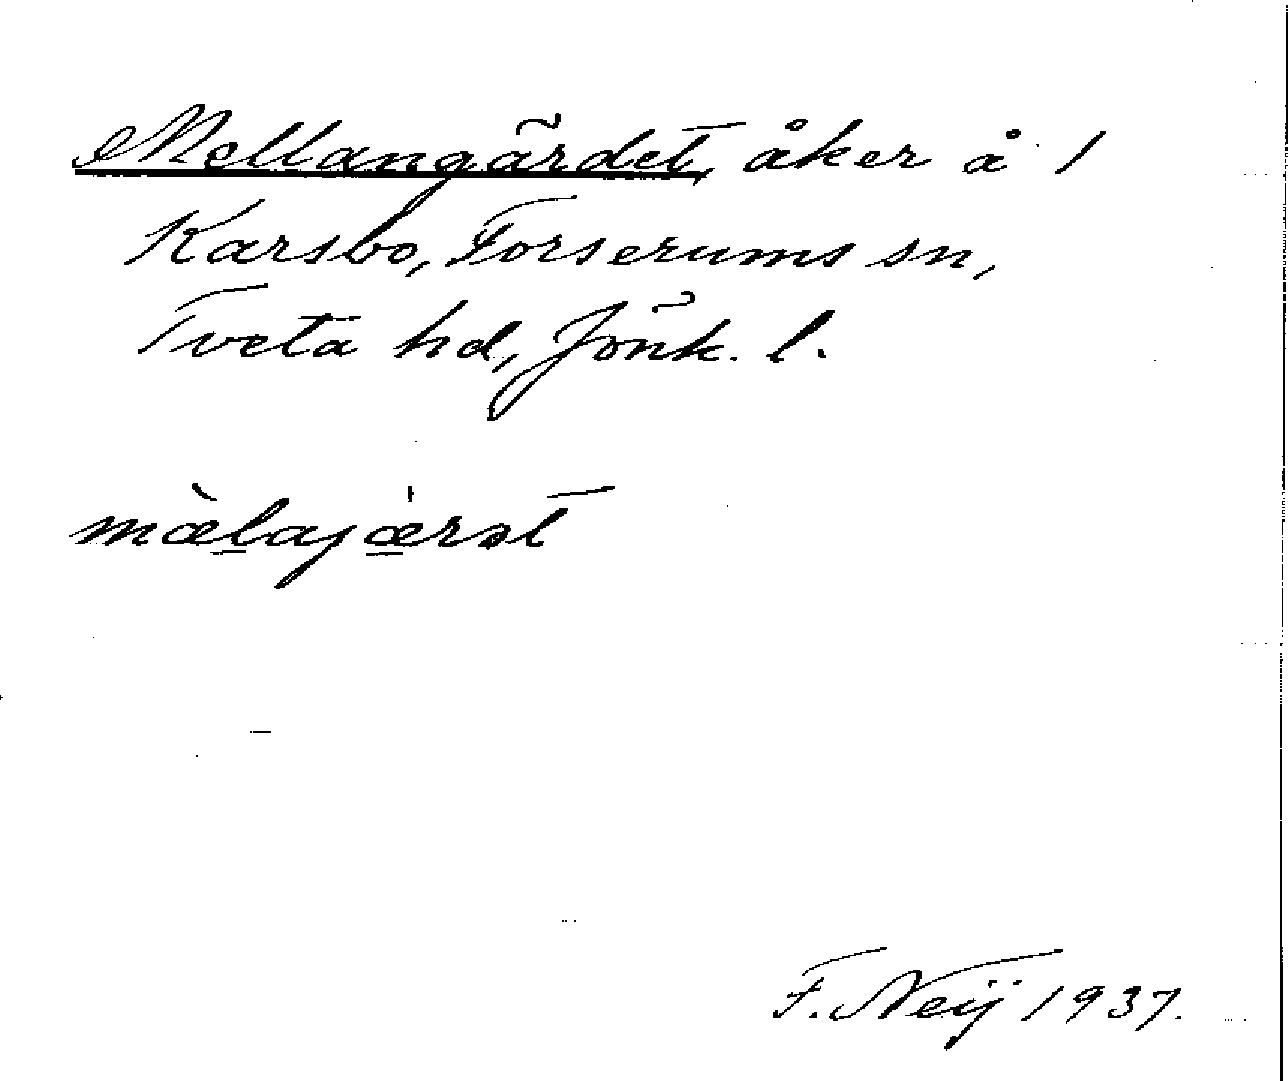 Mellangärdet, åker å 1
Karsbo, Forserums sn,
Tveta hd, Jönk. l.
mæ̀lajæ̍rət
F. Neij 1937.